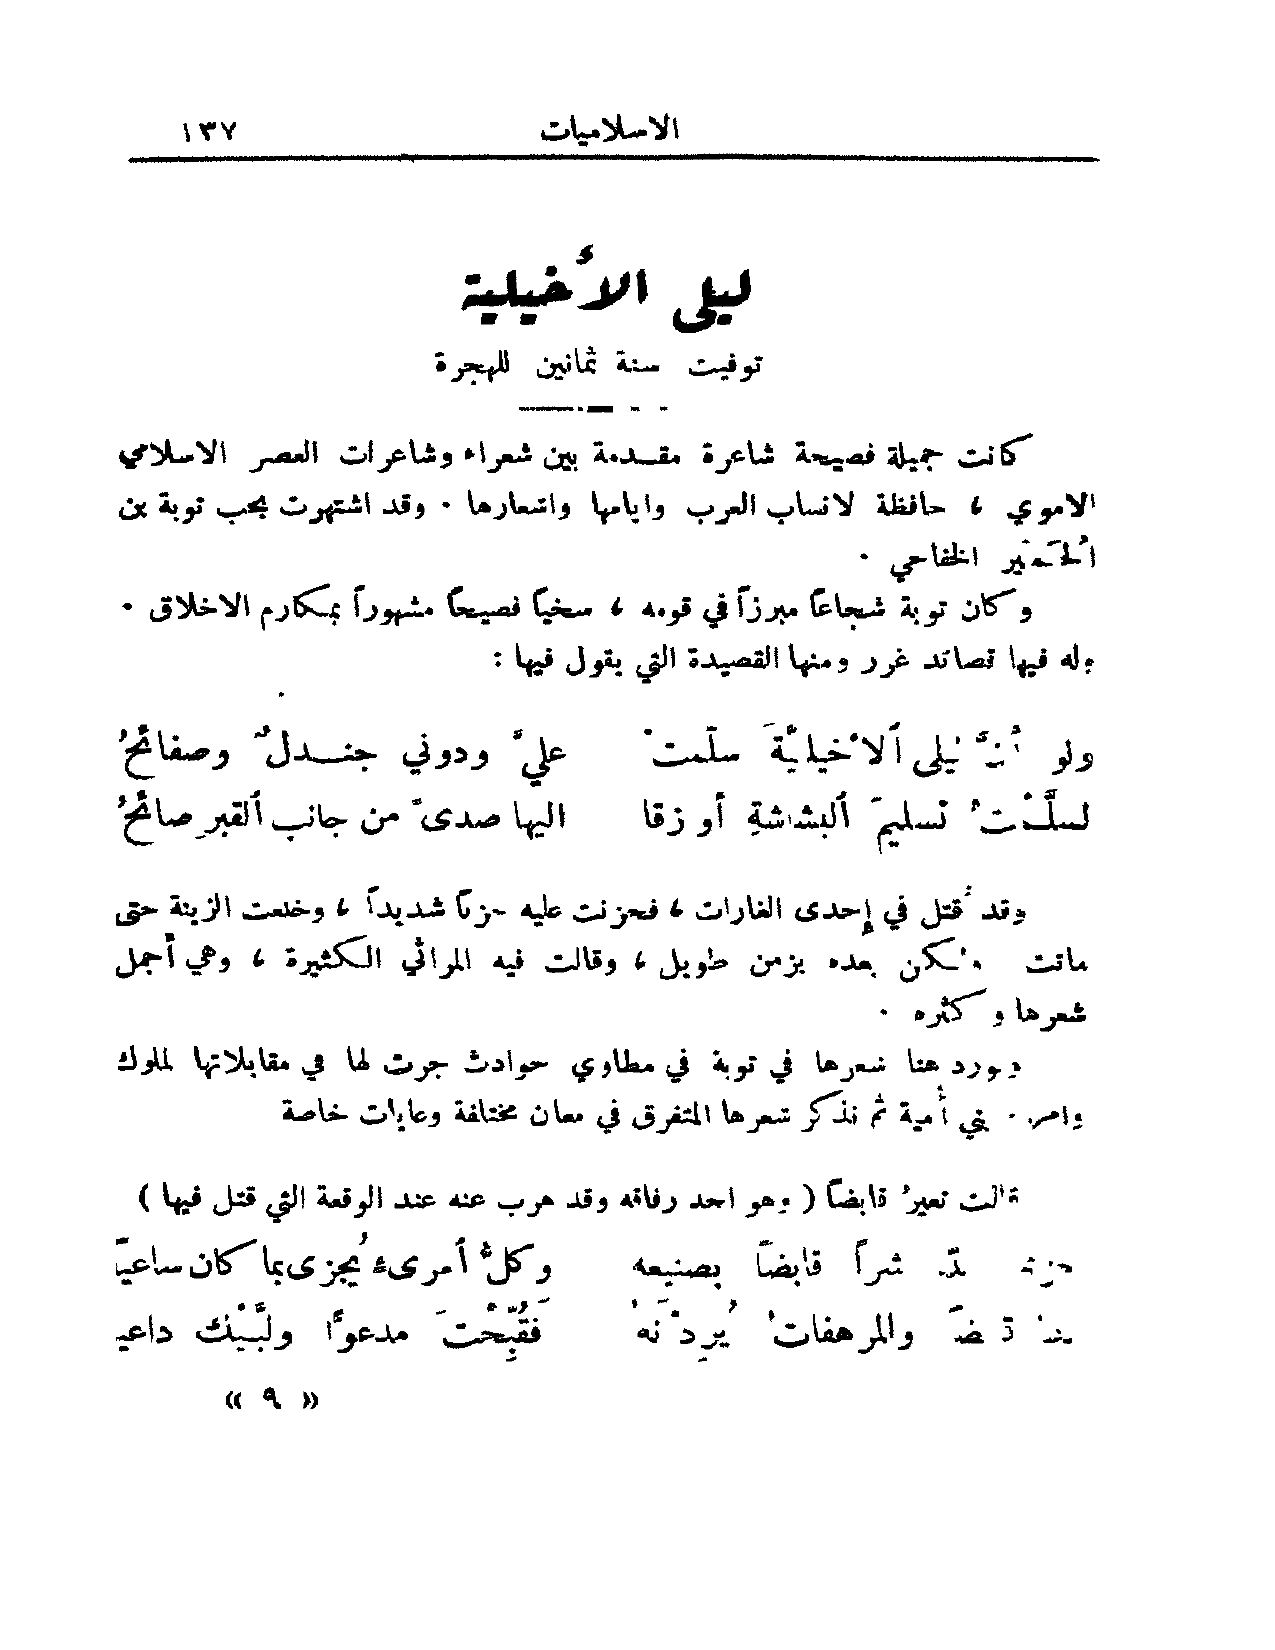 الاسلاميات ١٣٧
ليلى الأخيلية
توفيت سنة ثمانين للهجرة
كانت جميلة فصيحة شاعرة مقدمة بين شعراء وشاعرات العصر الاسلامي
الاموي ، حافظة لانساب العرب وايامها واشعارها . وقد اشتهرت بحب توبة بن
الحُمَيّر الخفاجي .
وكان توبة شجاعاً مبرزاً في قومه ، سخياً فصيحاً مشهوراً بمكارم الاخلاق .
وله فيها قصائد غرر ومنها القصيدة التي يقول فيها :
ولو أنَّ ليلى ألاخيليَّةَ سلّمتْ عليَّ ودوني جندلٌ وصفائحُ
لسلَّمتُ تسليمَ ألبشاشةِ أو زقا اليها صدىً من جانب ألقبر صائحُ
وقد قُتل في إحدى الغارات ، فحزنت عليه حزناً شديداً ، وخلعت الزينة حتى
ماتت بعده بزمن طويل ، وقالت فيه المراثي الكثيرة ، وهي أجمل
شعرها وكثره .
ونورد هنا شعرها في توبة في مطاوي حوادث جرت لها في مقابلاتها لملوك
وامراء بني أمية ثم نذكر شعرها المتفرق في معان مختلفة وغايات خاصة
قالت تعيرُ قابضاً ( وهو احد رفاقه وقد هرب عنه عند الوقعة التي قتل فيها )
شراً قابضاً بصنيعه وكلُّ أمرىء يُجزى بما كان ساعياً
والمرهفاتُ يُرِدْنَهُ فَقُبِّحْتَ مدعواً ولبَّيْك داعيا
« ٩ »